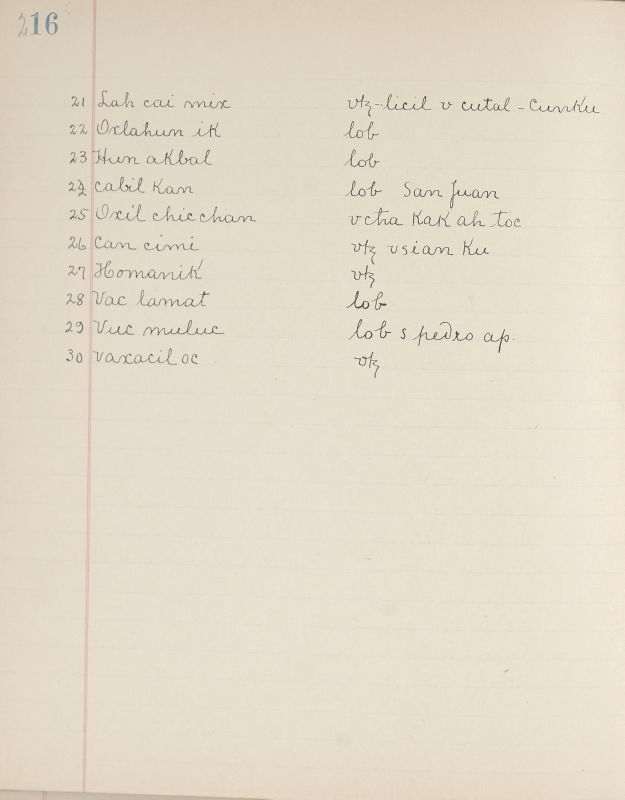 216
21 Lah cai mix vtz-licil v cutal - Cunku
22 Oxlahun ik lob
23 Hun akbal lob
24 cabil Kan lob San Juan
25 Oxil chicchan v cha Kak ah toc
26 Can cimi vtz vsian Ku
27 Homanik vtz
28 Vac lamat lob
29 Vuc muluc lob s pedro ap.
30 vaxacil oc vtz